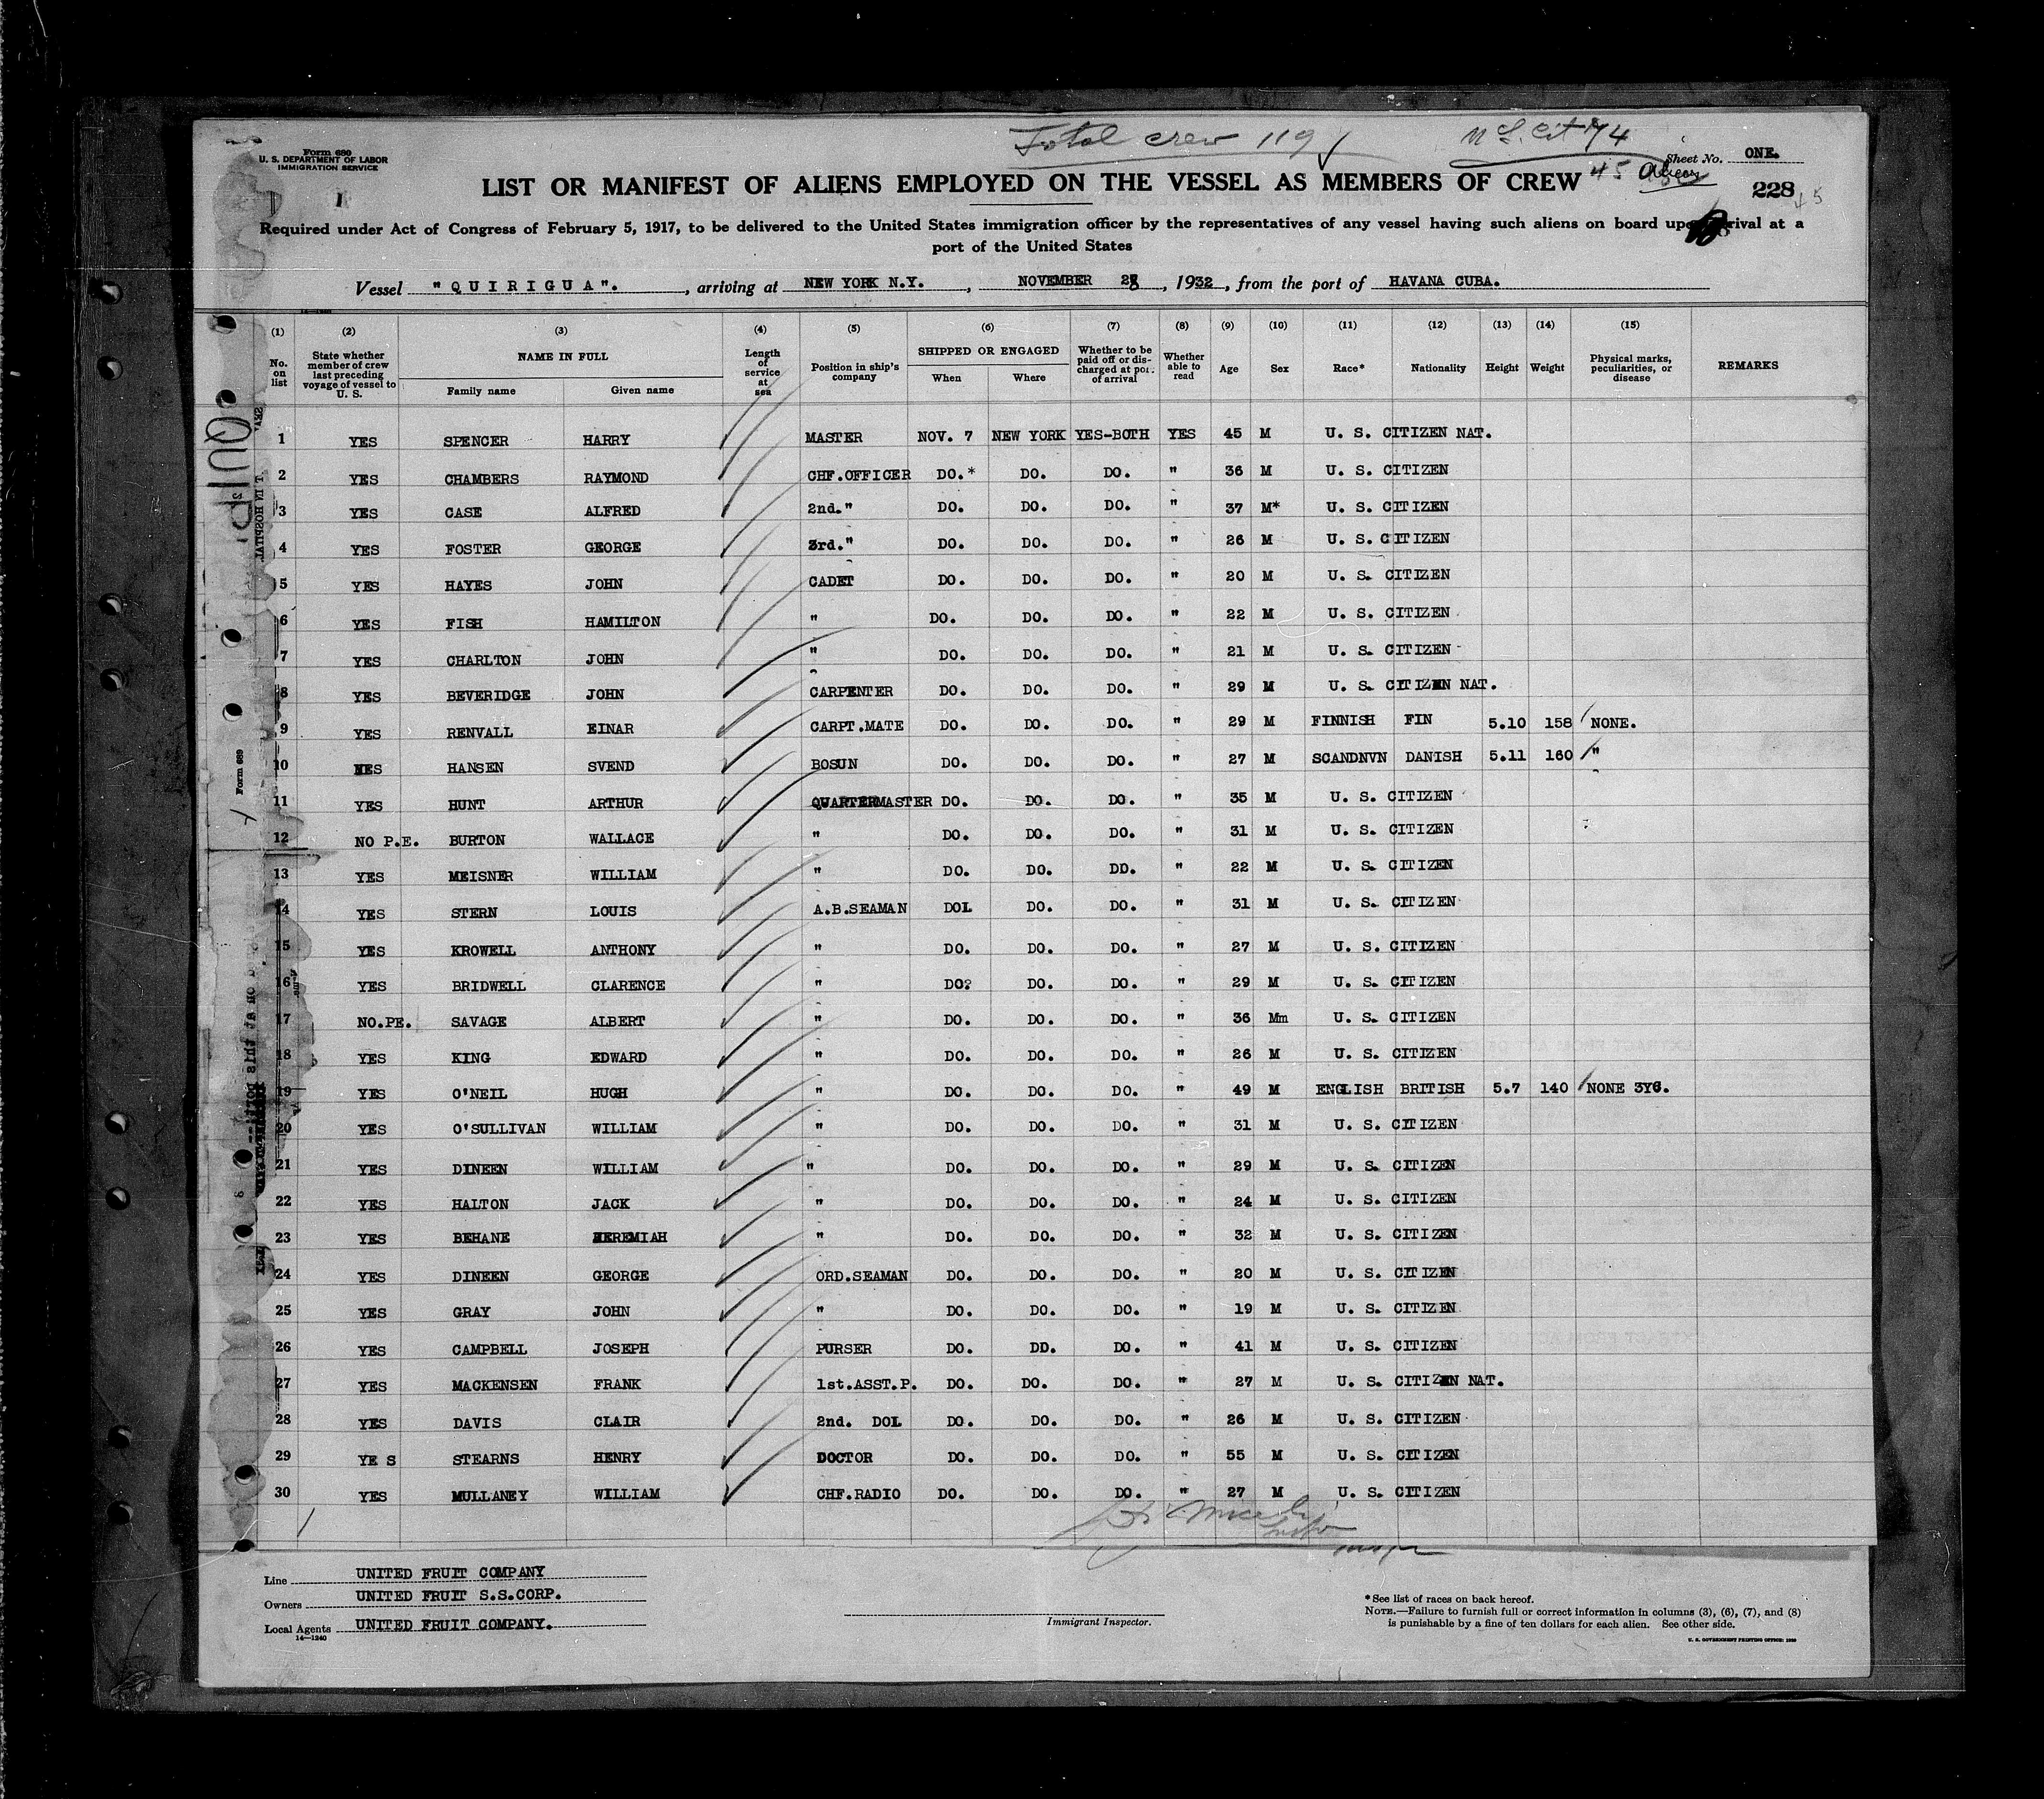 Total crew 119
U.S. Cit 74
45 Aliens
Form 689
U. S. DEPARTMENT OF LABOR
IMMIGRATION SERVICE
Sheet No. ONE.
LIST OR MANIFEST OF ALIENS EMPLOYED ON THE VESSEL AS MEMBERS OF CREW
228
45
Required under Act of Congress of February 5, 1917, to be delivered to the United States immigration officer by the representatives of any vessel having such aliens on board upon arrival at a
port of the United States
Vessel "QUIRIGUA"., arriving at NEW YORK N.Y., NOVEMBER 28, 1932, from the port of HAVANA CUBA.
(1) (2) (3) (4) (5) (6) (7) (8) (9) (10) (11) (12) (13) (14) (15)
No. on list State whether member of crew last preceding voyage of vessel to U. S. NAME IN FULL Family name Given name Length of service at sea Position in ship's company SHIPPED OR ENGAGED When Where Whether to be paid off or discharged at port of arrival Whether able to read Age Sex Race* Nationality Height Weight Physical marks, peculiarities, or disease REMARKS
1 YES SPENCER HARRY MASTER NOV. 7 NEW YORK YES-BOTH YES 45 M U. S. CITIZEN NAT.
2 YES CHAMBERS RAYMOND CHF.OFFICER DO.* DO. DO. " 36 M U. S. CITIZEN
3 YES CASE ALFRED 2nd." DO. DO. DO. " 37 M* U. S. CITIZEN
4 YES FOSTER GEORGE 3rd." DO. DO. DO. " 26 M U. S. CITIZEN
5 YES HAYES JOHN CADET DO. DO. DO. " 20 M U. S. CITIZEN
6 YES FISH HAMILTON " DO. DO. DO. " 22 M U. S. CITIZEN
7 YES CHARLTON JOHN " DO. DO. DO. " 21 M U. S. CITIZEN
8 YES BEVERIDGE JOHN CARPENTER DO. DO. DO. " 29 M U. S. CITIZEN NAT.
9 YES RENVALL EINAR CARPT.MATE DO. DO. DO. " 29 M FINNISH FIN 5.10 158 NONE.
10 YES HANSEN SVEND BOSUN DO. DO. DO. " 27 M SCANDNVN DANISH 5.11 160 "
11 YES HUNT ARTHUR QUARTERMASTER DO. DO. DO. " 35 M U. S. CITIZEN
12 NO P.E. BURTON WALLACE " DO. DO. DO. " 31 M U. S. CITIZEN
13 YES MEISNER WILLIAM " DO. DO. DD. " 22 M U. S. CITIZEN
14 YES STERN LOUIS A.B.SEAMAN DOL DO. DO. " 31 M U. S. CITIZEN
15 YES KROWELL ANTHONY " DO. DO. DO. " 27 M U. S. CITIZEN
16 YES BRIDWELL CLARENCE " DO? DO. DO. " 29 M U. S. CITIZEN
17 NO.PE. SAVAGE ALBERT " DO. DO. DO. " 36 Mm U. S. CITIZEN
18 YES KING EDWARD " DO. DO. DO. " 26 M U. S. CITIZEN
19 YES O'NEIL HUGH " DO. DO. DO. " 49 M ENGLISH BRITISH 5.7 140 NONE 3YS.
20 YES O'SULLIVAN WILLIAM " DO. DO. DO. " 31 M U. S. CITIZEN
21 YES DINEEN WILLIAM " DO. DO. DO. " 29 M U. S. CITIZEN
22 YES HALTON JACK " DO. DO. DO. " 24 M U. S. CITIZEN
23 YES BEHANE JEREMIAH " DO. DO. DO. " 32 M U. S. CITIZEN
24 YES DINEEN GEORGE ORD.SEAMAN DO. DO. DO. " 20 M U. S. CITIZEN
25 YES GRAY JOHN " DO. DO. DO. " 19 M U. S. CITIZEN
26 YES CAMPBELL JOSEPH PURSER DO. DD. DO. " 41 M U. S. CITIZEN
27 YES MACKENSEN FRANK 1st.ASST.P. DO. DO. DO. " 27 M U. S. CITIZEN NAT.
28 YES DAVIS CLAIR 2nd. DOL DO. DO. DO. " 26 M U. S. CITIZEN
29 YE S STEARNS HENRY DOCTOR DO. DO. DO. " 55 M U. S. CITIZEN
30 YES MULLANEY WILLIAM CHF.RADIO DO. DO. DO. " 27 M U. S. CITIZEN
Line UNITED FRUIT COMPANY
Owners UNITED FRUIT S.S.CORP.
Local Agents UNITED FRUIT COMPANY.
14—1240
Immigrant Inspector.
*See list of races on back hereof.
NOTE.—Failure to furnish full or correct information in columns (3), (6), (7), and (8)
is punishable by a fine of ten dollars for each alien. See other side.
U. S. GOVERNMENT PRINTING OFFICE: 1930
Form 689